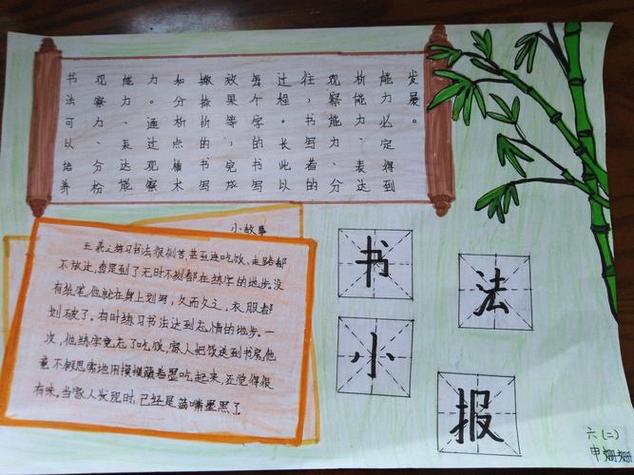 书法可以培养
观察力、分析
能力、表达能
力。通过观察
如分析点横木
撇捺折的书写
效果等；完成
整个字的书写
过程。长此以
往，书写者的
观察能力、分
析能力、表达
能力必定得到
发展。
小故事
王羲之练习书法很刻苦,甚至连吃饭、走路都
不放过,真是到了无时不刻都在练字的地步。没
有纸笔,他就在身上划写,久而久之,衣服都
划破了。有时练习书法达到忘情的地步。一
次,他练字竟忘了吃饭,家人把饭送到书房,他
竟不假思索地用馍馍蘸着墨吃起来,还觉得很
有味。当家人发现时,已经是满嘴墨黑了
书
法
小
报
六(二)
申姗姗